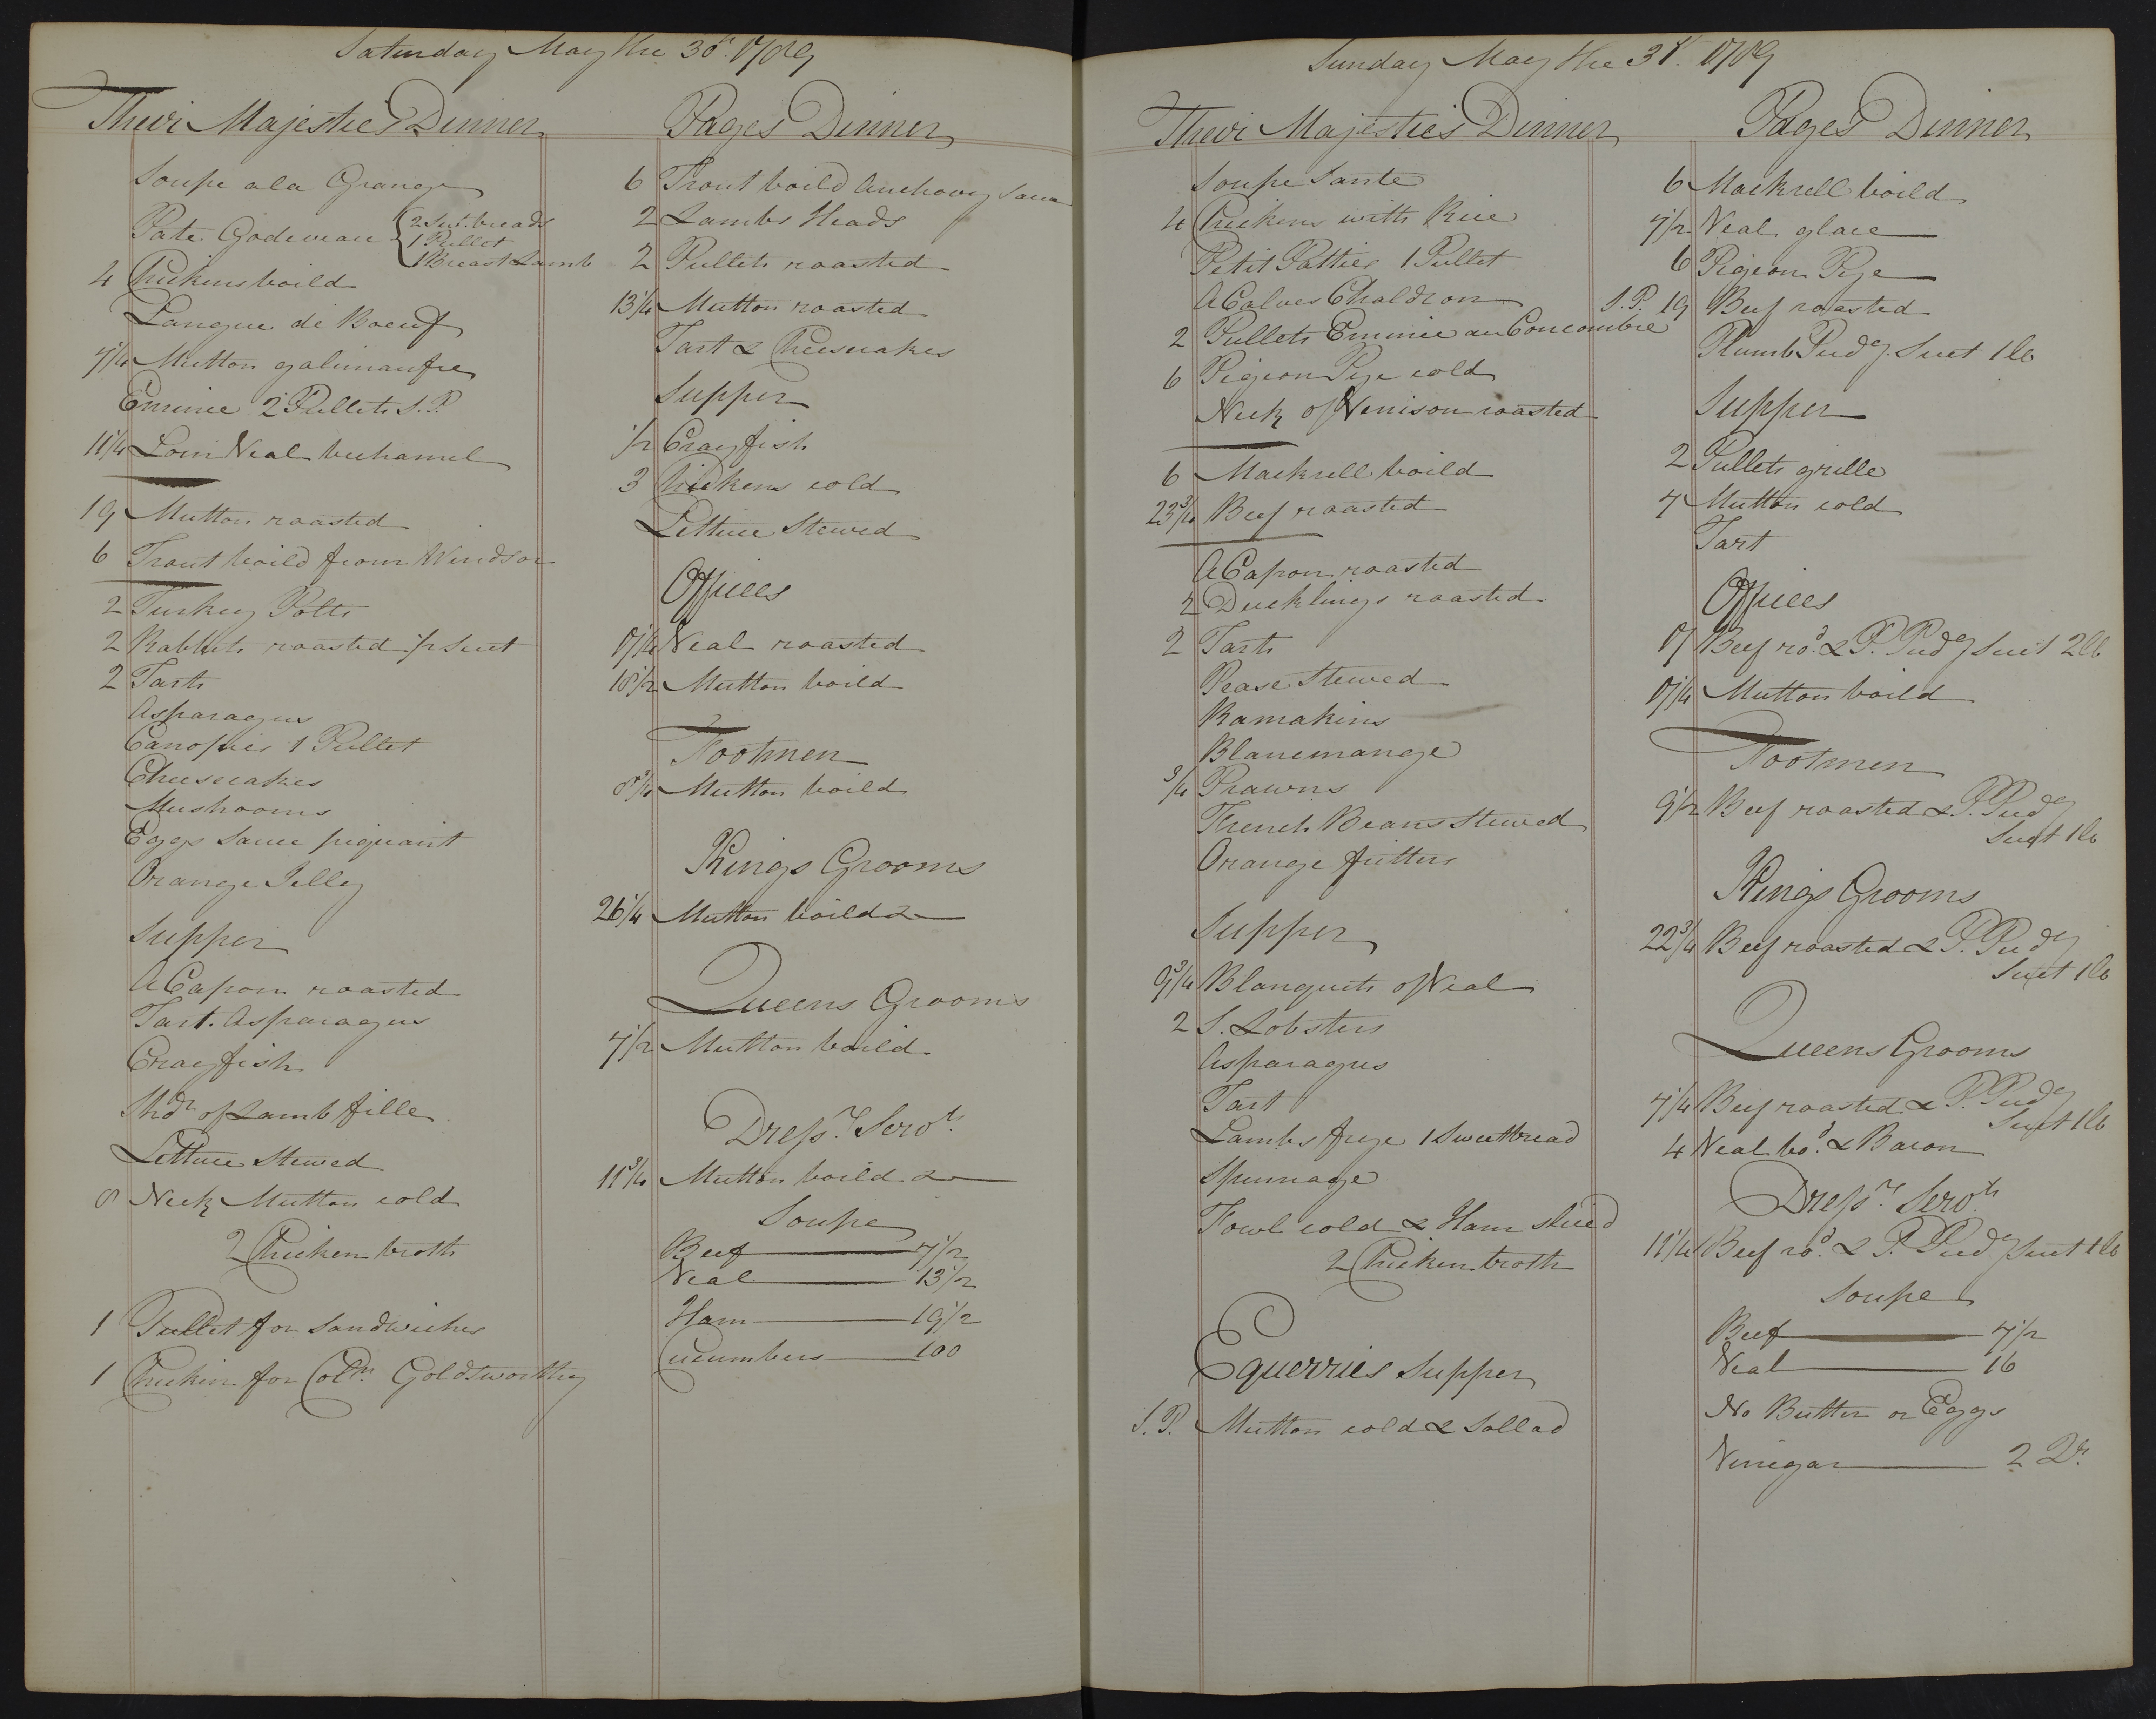 Saturday May the 30th. 1789
Their Majesties Dinner
Soupe a la Grange
Pate Godiveau { 2 Swt. breads
1 Pullet
1 Breast Lamb
4 Chickens boild
Langue de Boeuf
7 1/4 Mutton galimaufre
Emincé 2 Pullets S.P.
11 1/4 Loin Veal bechamel
19 Mutton roasted
6 Trout boild from Windsor
2 Turkey Polts
2 Rabbits roasted 1/2 Suet
2 Tarts
Asparagus
Canopies 1 Pullet
Cheescakes
Mushrooms
Eggs Sauce piquant
Orange Jelley
Supper
A Capon roasted
Tart. Asparagus
Crayfish
Shdr. of Lamb fille
Lettuce Stewed
8 Neck Mutton cold
2 Chicken broth
1 Pullet for Sandwiches
1 Chicken for Coln. Goldsworthy
Pages Dinner
6 Trout boild Anchovy Sauce
2 Lambs Heads
2 Pullets roasted
13 1/4 Mutton roasted
Tart & Cheescakes
Supper
1/2 Crayfish
3 Chickens cold
Lettuce Stewed
Offices
17 1/4 Veal roasted
18 1/2 Mutton boild
Footmen
8 3/4 Mutton boild
Kings Grooms
26 1/4 Mutton boild &
Queens Grooms
7 1/2 Mutton boild
Dressrs. Servts.
11 3/4 Mutton boild &
Soupe
Beef 7 1/2
Veal 13 1/2
Ham 19 1/2
Cucumbers 100
Sunday May the 31st. 1789
Their Majesties Dinner
Soupe Sante
4 Chickens with Rice
Petit Patties 1 Pullet
A Calves Chaldron
2 Pullets Emincé au Concombre
6 Pigeon Pye cold
Neck of Venison roasted
6 Mackrell boild
23 3/4 Beef roasted
A Capon roasted
2 Ducklings roasted
2 Tarts
Pease Stewed
Ramakins
Blancmange
3/4 Prawns
French Beans Stewed
Orange fritters
Supper
9 3/4 Blanquets of Veal
2 S. Lobsters
Asparagus
Tart
Lambs frye 1 Sweetbread
Spinnage
Fowl cold & Ham slice'd
2 Chicken broth
Equerries Supper
S.P. Mutton cold & Sallad
Pages Dinner
6 Mackrell boild
7 1/2 Veal glace
6 Pigeon Pye
S.P. 19 Beef roasted
Plumb Pudg. Suet 1 lb
Supper
2 Pullets grille
7 Mutton cold
Tart
Offices
17 Beef rod. & P. Pudg Suet 2 lb
17 1/4 Mutton boild
Footmen
9 1/2 Beef roasted & P. Pudg
Suet 1 lb
Kings Grooms
22 3/4 Beef roasted & P. Pudg
Suet 1 lb
Queens Grooms
7 1/4 Beef roasted & P. Pudg
Suet 1 lb
4 Veal bod. & Bacon
Dressrs. Servts.
11 1/4 Beef rod. & P. Pudg Suet 1 lb
Soupe
Beef 7 1/2
Veal 16
No Butter or Eggs
Vinegar 2 Qts.